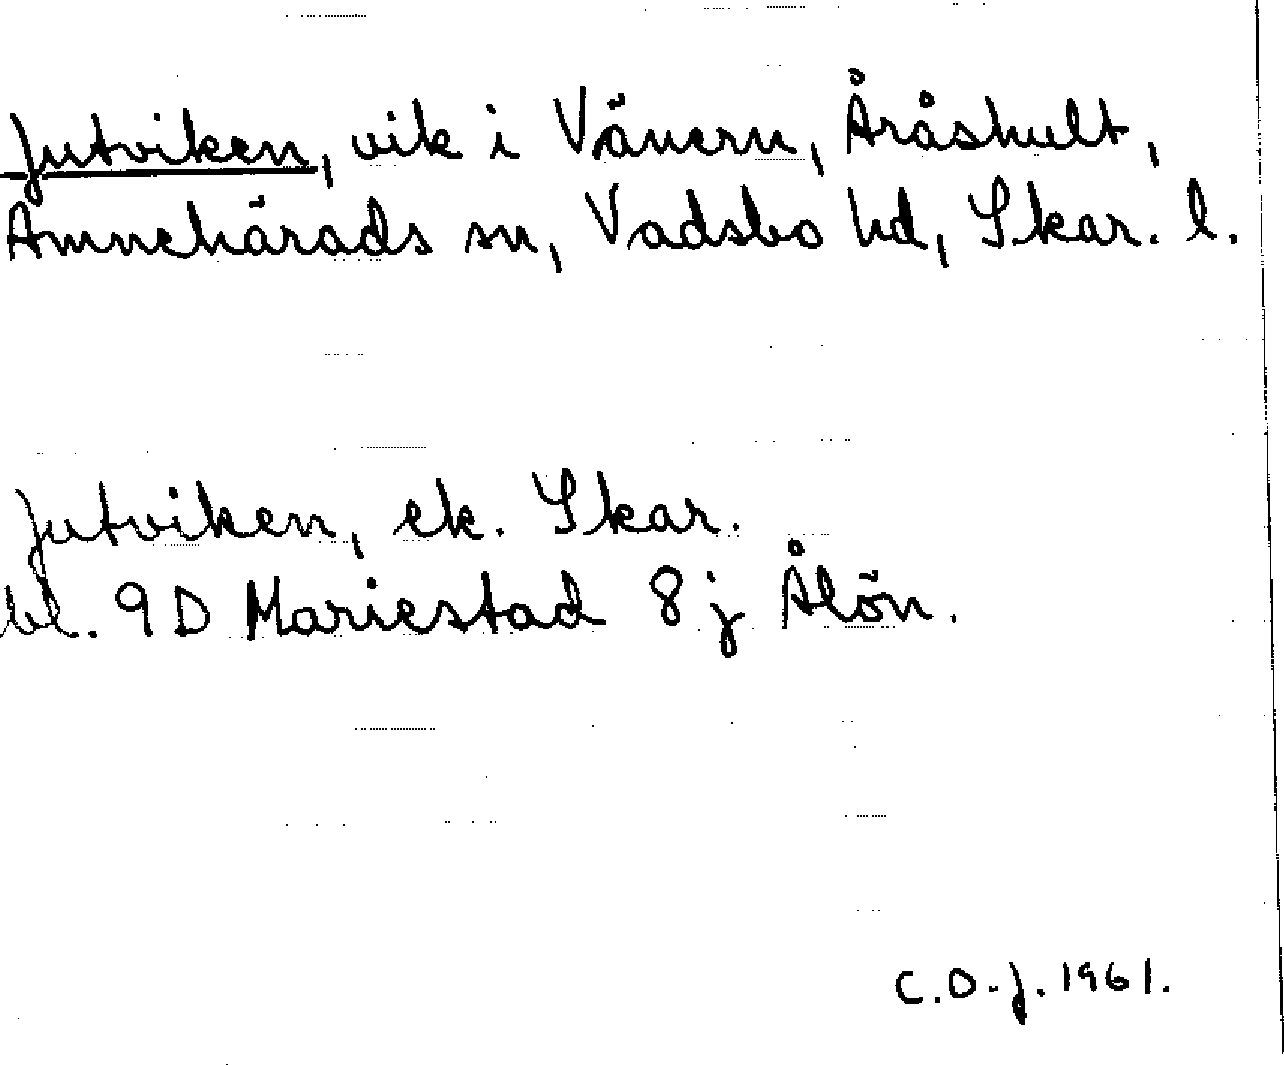 Jutviken, vik i Vänern, Åråshult,
Amnehärads sn, Vadsbo hd, Skar. l.
Jutviken, ek. Skar.
bl. 9D Mariestad 8j Ålön.
C.O-J. 1961.